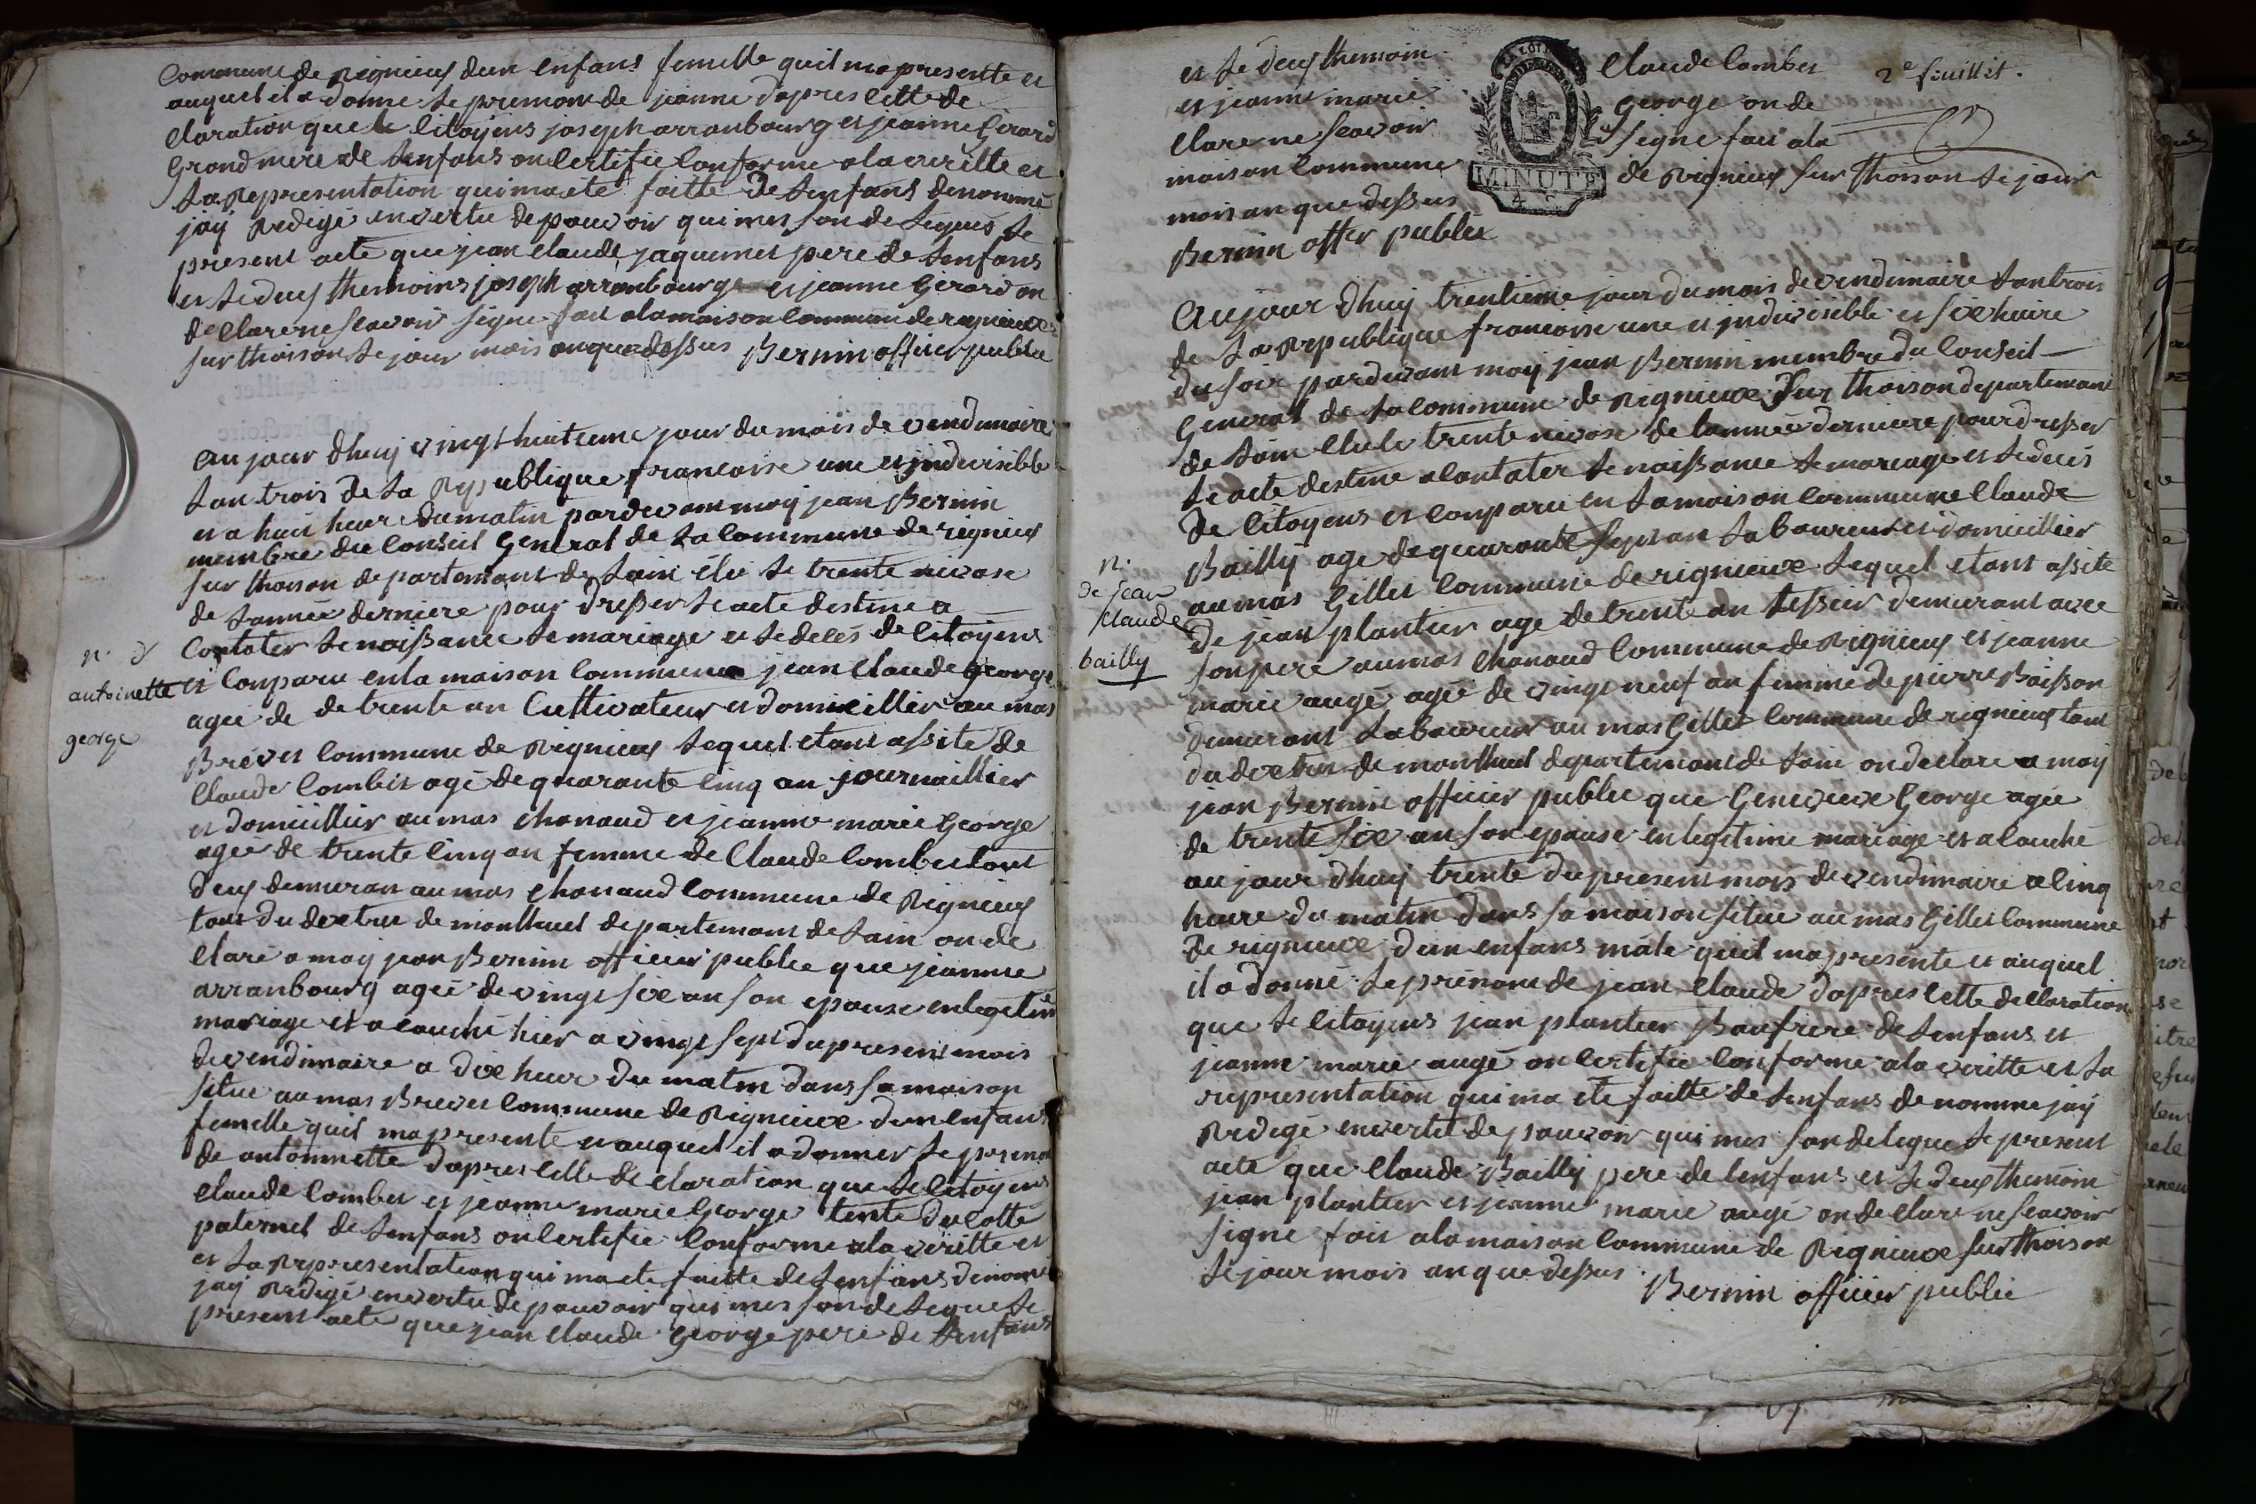 Commune de Rignieu dun enfans femelle quil ma presente et
auquel il a donne le prenom de jeanne dapres cette de
claration que le citoyens joseph arranbourg et jeanne Girard
Grand mere de lenfans on certifie conforme a la veritte et
la Representation qui ma ete faitte de lenfans denommé
jay Redigé en vertu de pouvoir qui mes son delegues le
present acte que jean claude jaquemet pere de lenfans
et le deus themoins joseph arranbourg et jeanne Girard on
declare ne scavoir signe fait a la maison commune de rignieux
sur thoison le jour mois an que dessus Bernin officier publie
au jour dhuy vingt huitieme jour du mois de vendimaire
lan trois de la Republique francoise une et indivisible
et a huit heure du matin pardevant moy jean Bernin
membre du conseil General de la commune de rignieu
sur thoison departemant de lain élû le trente nivose
de lannée derniere pour dresser le acte destine a
contater le naissance le mariage et le deces de citoyens
n. d
antoinette
george
et conparu en la maison commune jean claude George
agée de de trente an cultivateur et domicillier au mas
Brevet commune de Rignieu lequel etant assite de
claude Combet agé de quarante cinq an journaillier
et domicillier au mas chanaud et jeanne marie George
agée de trente cinq an femme de claude combet tout
deus demeuran au mas chanaud commune de Rignieu
tout du dextric de monlhuel departemant de lain on de
claré a moy jean Bernin officier publie que jeanne
arranbourg agée de vingt six an son epouse en legitime
mariage et acouché hier a vingt sept du present mois
de vendimaire a dix heur du matin dans sa maison
situe au mas Brevet commune de Rignieux dun enfans
femelle quil ma presente et auquel il a donner le prenom
de antoinnette dapres cette declaration que le citoyens
claude combet et jeanne marie George tente du cotté
paternel de lenfans on certifie conforme a la veritte et
et la Representation qui ma ete faitte de lenfans denomé
jay Redigé en vertu de pouvoir qui mes son delegue le
present acte que jean claude George pere de lenfans
et le deus themoin claude Combet 2e feuillet.
et jeanne marie George on de
clare ne scavoir signe fait a la
maison commune de Rignieu sur thoison le jour
mois an que dessus
MINUTE
Bernin offier publie
aujour dhuy trentieme jour du mois de vendimaire lan trois
de la Republique francoise une et indivisible et six heure
du soir pardevant moy jean Bernin membre du Conseil
General de la commune de Rignieux sur thoison departemant
de lain élu le trente nivose de lannée derniere pour dresser
le acte destine a contater le naissance le mariage et le deces
de citoyens et conparu en la maison commune claude
n.
de jean
claude
bailly
Bailly age de quarante sept an laboureur et domicillier
au mas Gillet commune de rignieux lequel etant assité
de jean plantier age de trente an tesseur demeurant avec
son pere au mas chanaud commune de Rignieu et jeanne
marie augé agée de vingt neuf an femme de pierre Boisson
demeurant laboureur au mas Gillet commune de rignieu tout
du dextric de monlhuel departemant de lain on declare a moy
jean Bernin officier publie que Genevieve George agée
de trente six an son epouse en legitime mariage et acouché
au jour dhuy trente du present mois de vendimaire a cinq
heure du matin dans sa maison situe au mas Gillet commune
de rignieux dun enfans male quil ma presente et auquel
il a donné le prénom de jean claude dapres cette declaration
que le citoyens jean plantier Baufrere de lenfans et
jeanne marie augé on certifie conforme a la veritte et la
representation qui ma ete faitte de lenfans denomme jay
Redigé en vertu de pouvoir qui mes son delegue le present
acte que claude Bailly pere de lenfans et le deus themoin
jean plantier et jeanne marie augé on declare ne scavoir
signe fait a la maison commune de Rignieux sur thoison
le jour mois an que dessus
Bernin officier publie